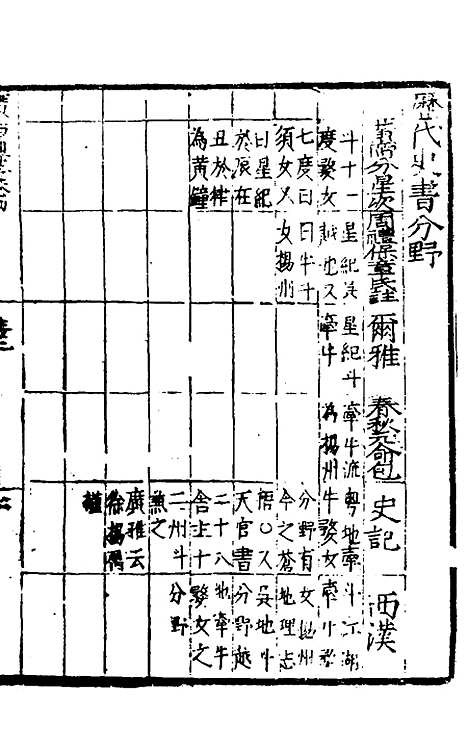 歷代史書分野
分星次
周禮保章氏註
爾雅
春秋元命包
史記
西漢
斗十一
度婺女
七度曰
須女又
曰星紀
於辰在
丑於律
為黃鐘
星紀吳
越也又
曰牛斗
女揚州
星紀斗
牽牛
牽牛流
為揚州
粵地牽
牛婺女
分野有
今之蒼
梧〇又
天官書
二十八
舍主十
二州斗
兼之
廣雅云
徐揚
斗江湖
牽牛婺
女揚州
地理志
吳地斗
分野越
地牽牛
婺女之
分野